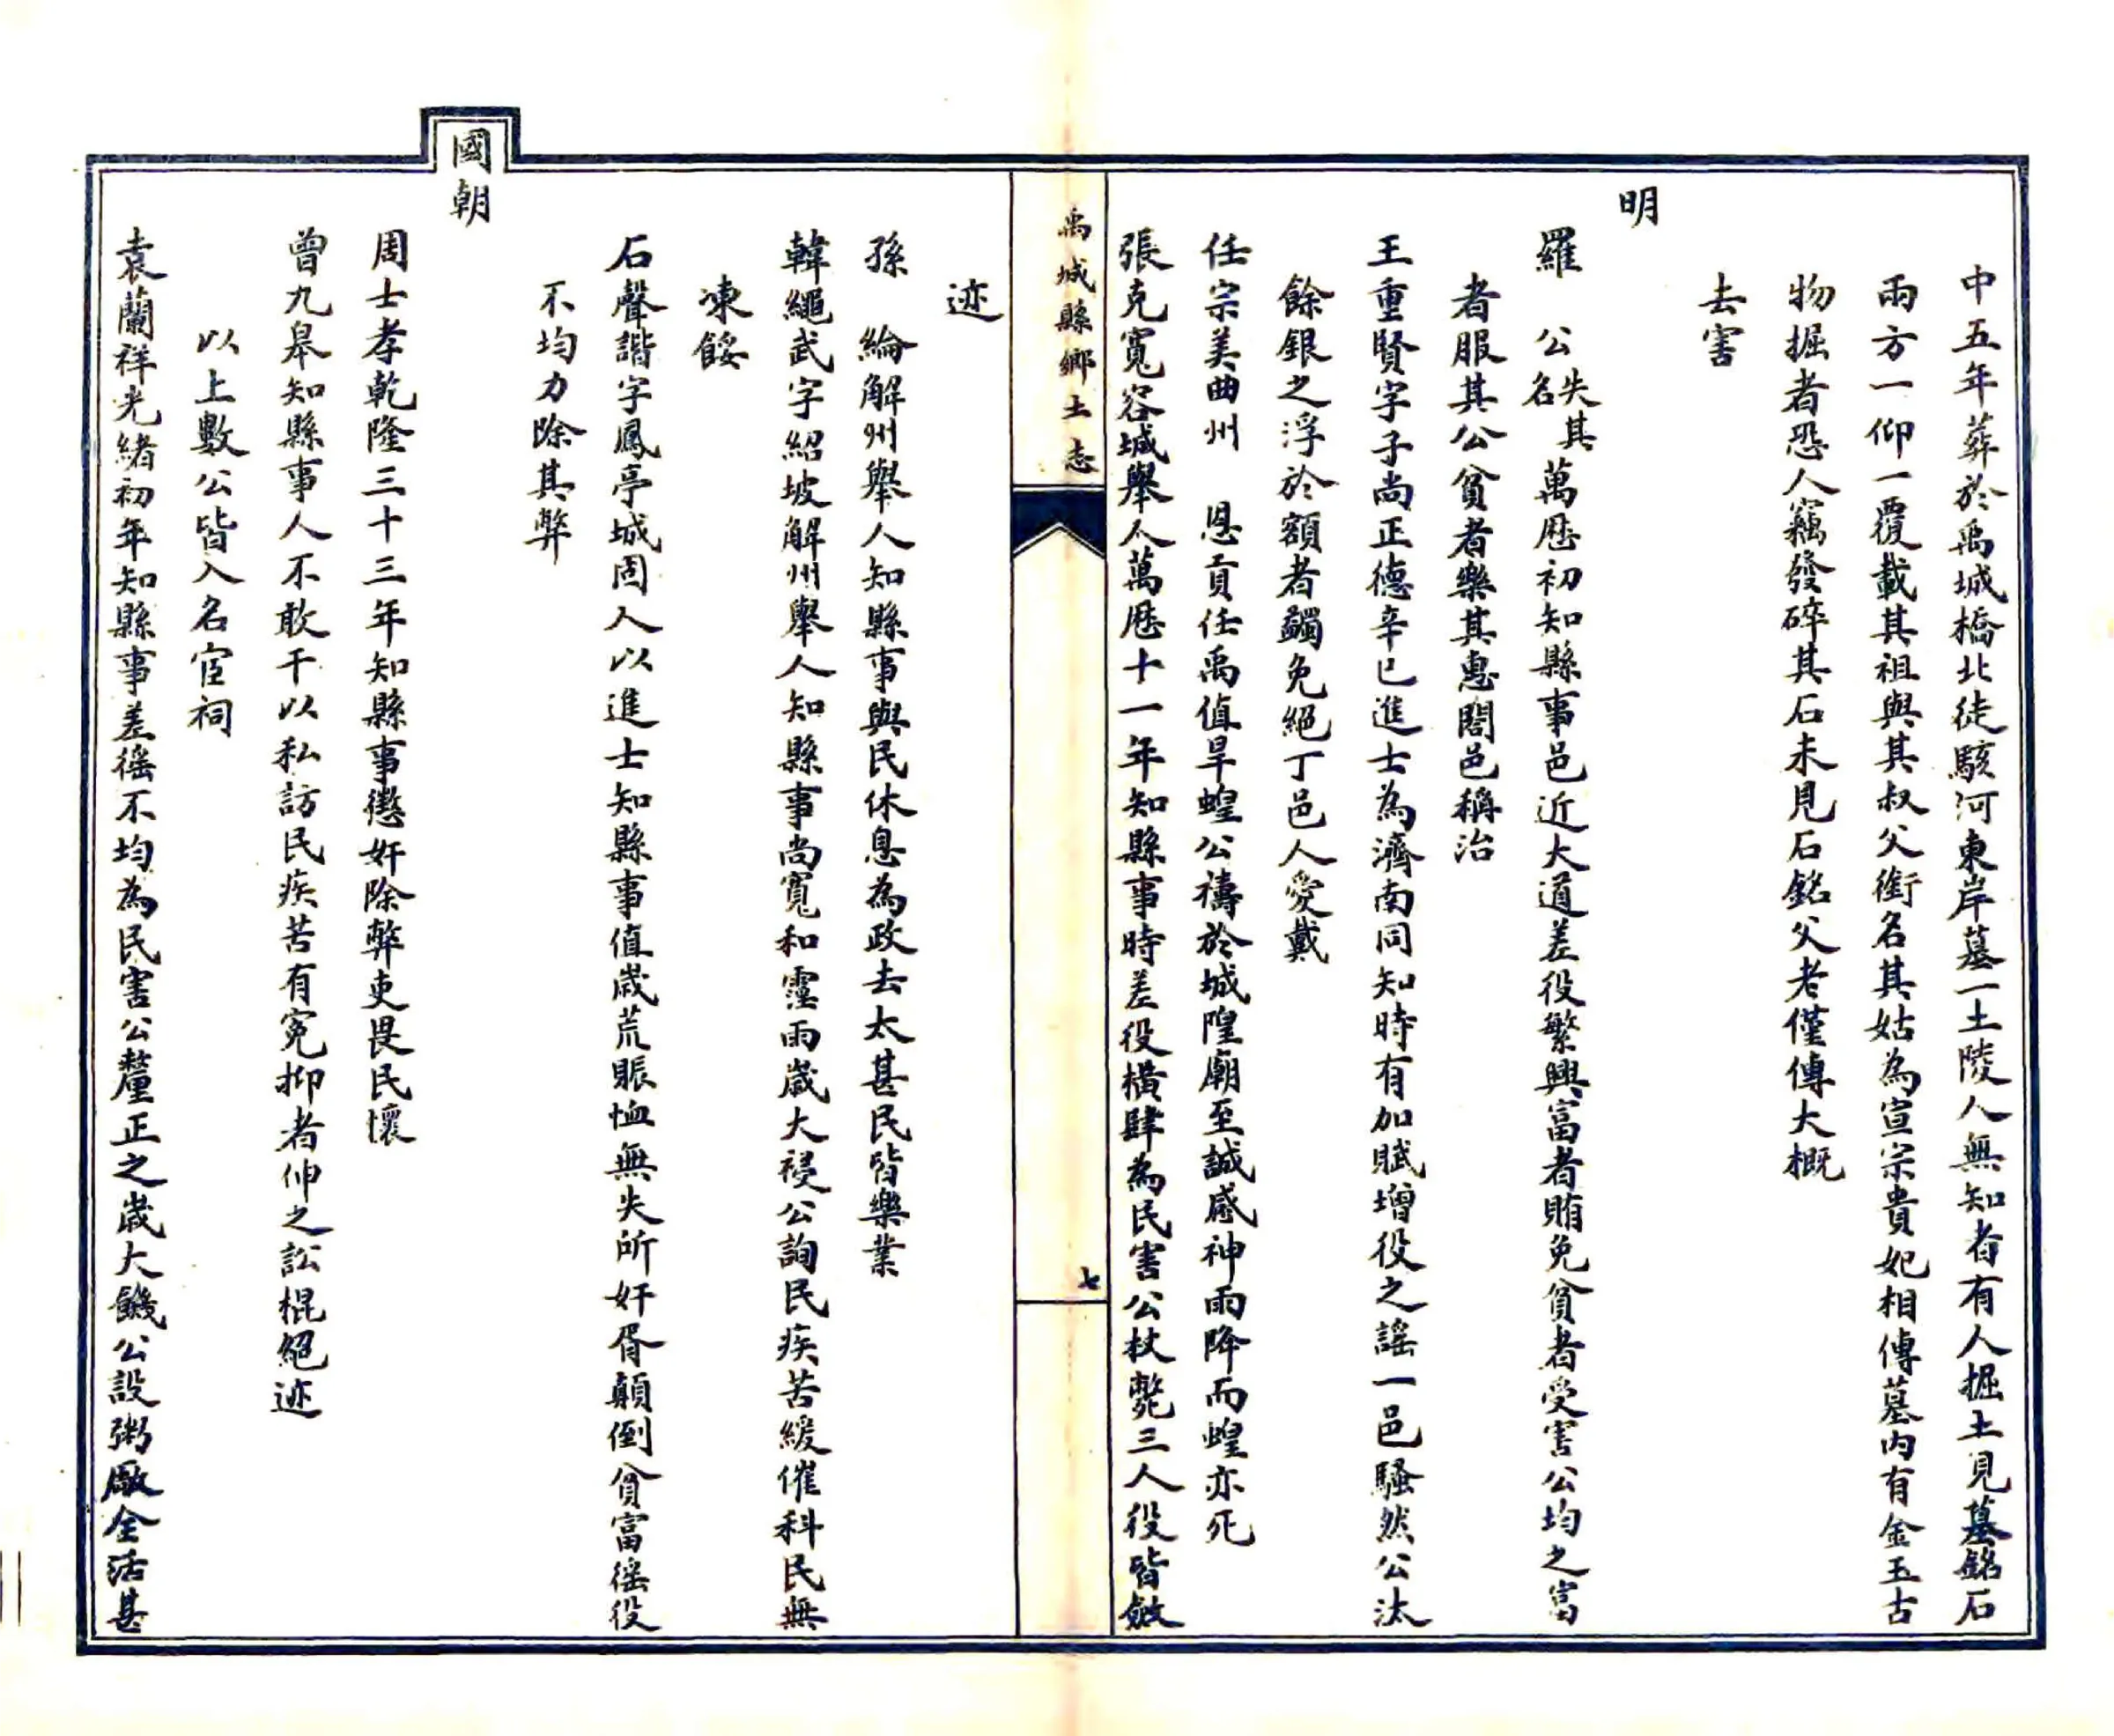 中五年葬於禹城橋北徒駭河東岸墓一土陵人無知者有人掘土見墓銘石
兩方一仰一覆載其祖與其叔父銜名其姑為宣宗貴妃相傳墓內有金玉古
物掘者恐人竊發碎其石未見石銘父老僅傳大概
去害
明
羅　公失其名萬厯初知縣事邑近大道差役繁興富者賄免貧者受害公均之富
者服其公貧者樂其惠闔邑稱治
王重賢字子尚正德辛巳進士為濟南同知時有加賦增役之謠一邑騷然公汰
餘銀之浮於額者蠲免絕丁邑人愛戴
任宗美曲州　恩貢任禹值旱蝗公禱於城隍廟至誠感神雨降而蝗亦死
張克寬容城舉人萬厯十一年知縣事時差役橫肆為民害公杖斃三人役皆斂
禹城縣鄉土志
七
迹
孫　綸解州舉人知縣事與民休息為政去太甚民皆樂業
韓繩武字紹坡解州舉人知縣事尚寬和霪雨歲大祲公詢民疾苦緩催科民無
凍餒
石聲諧字鳳亭城固人以進士知縣事值歲荒賑恤無失所奸胥顛倒貧富徭役
不均力除其弊
國朝
周士孝乾隆三十三年知縣事懲奸除弊吏畏民懷
曾九皋知縣事人不敢干以私訪民疾苦有冤抑者伸之訟棍絕迹
以上數公皆入名宦祠
袁蘭祥光緒初年知縣事差徭不均為民害公釐正之歲大饑公設粥厰全活甚